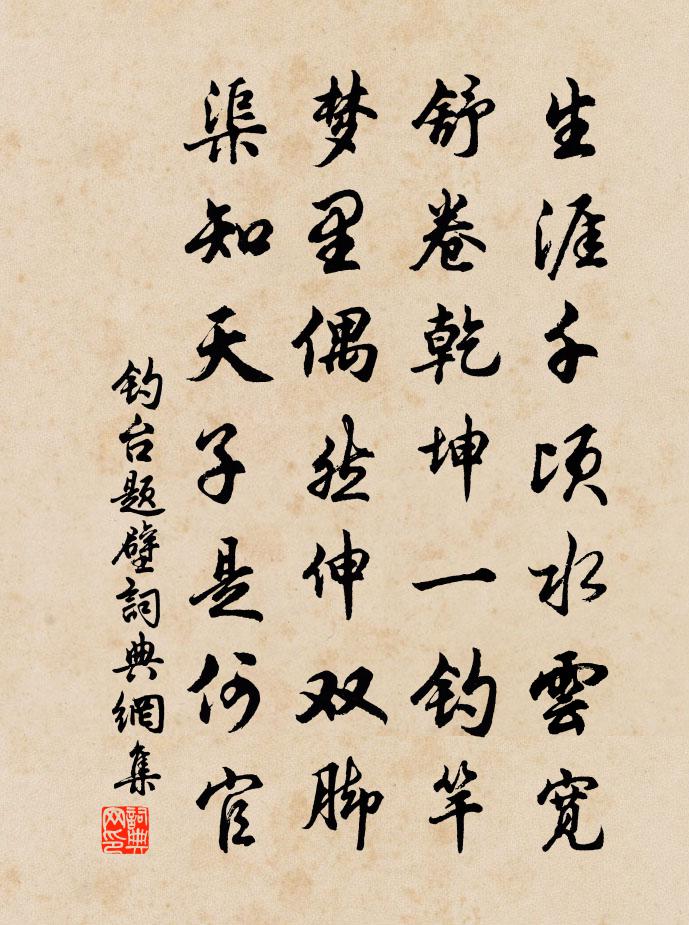 生涯千顷水雲寛
舒卷乾坤一钓竿
梦里偶然伸双脚
渠知天子是何官
钓台题壁詞典網集
詞典网印